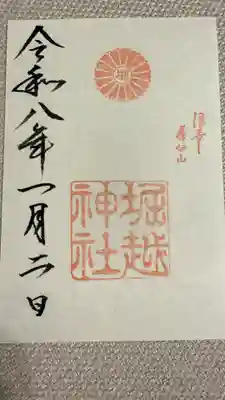 堀越
神社
令和八年一月二日